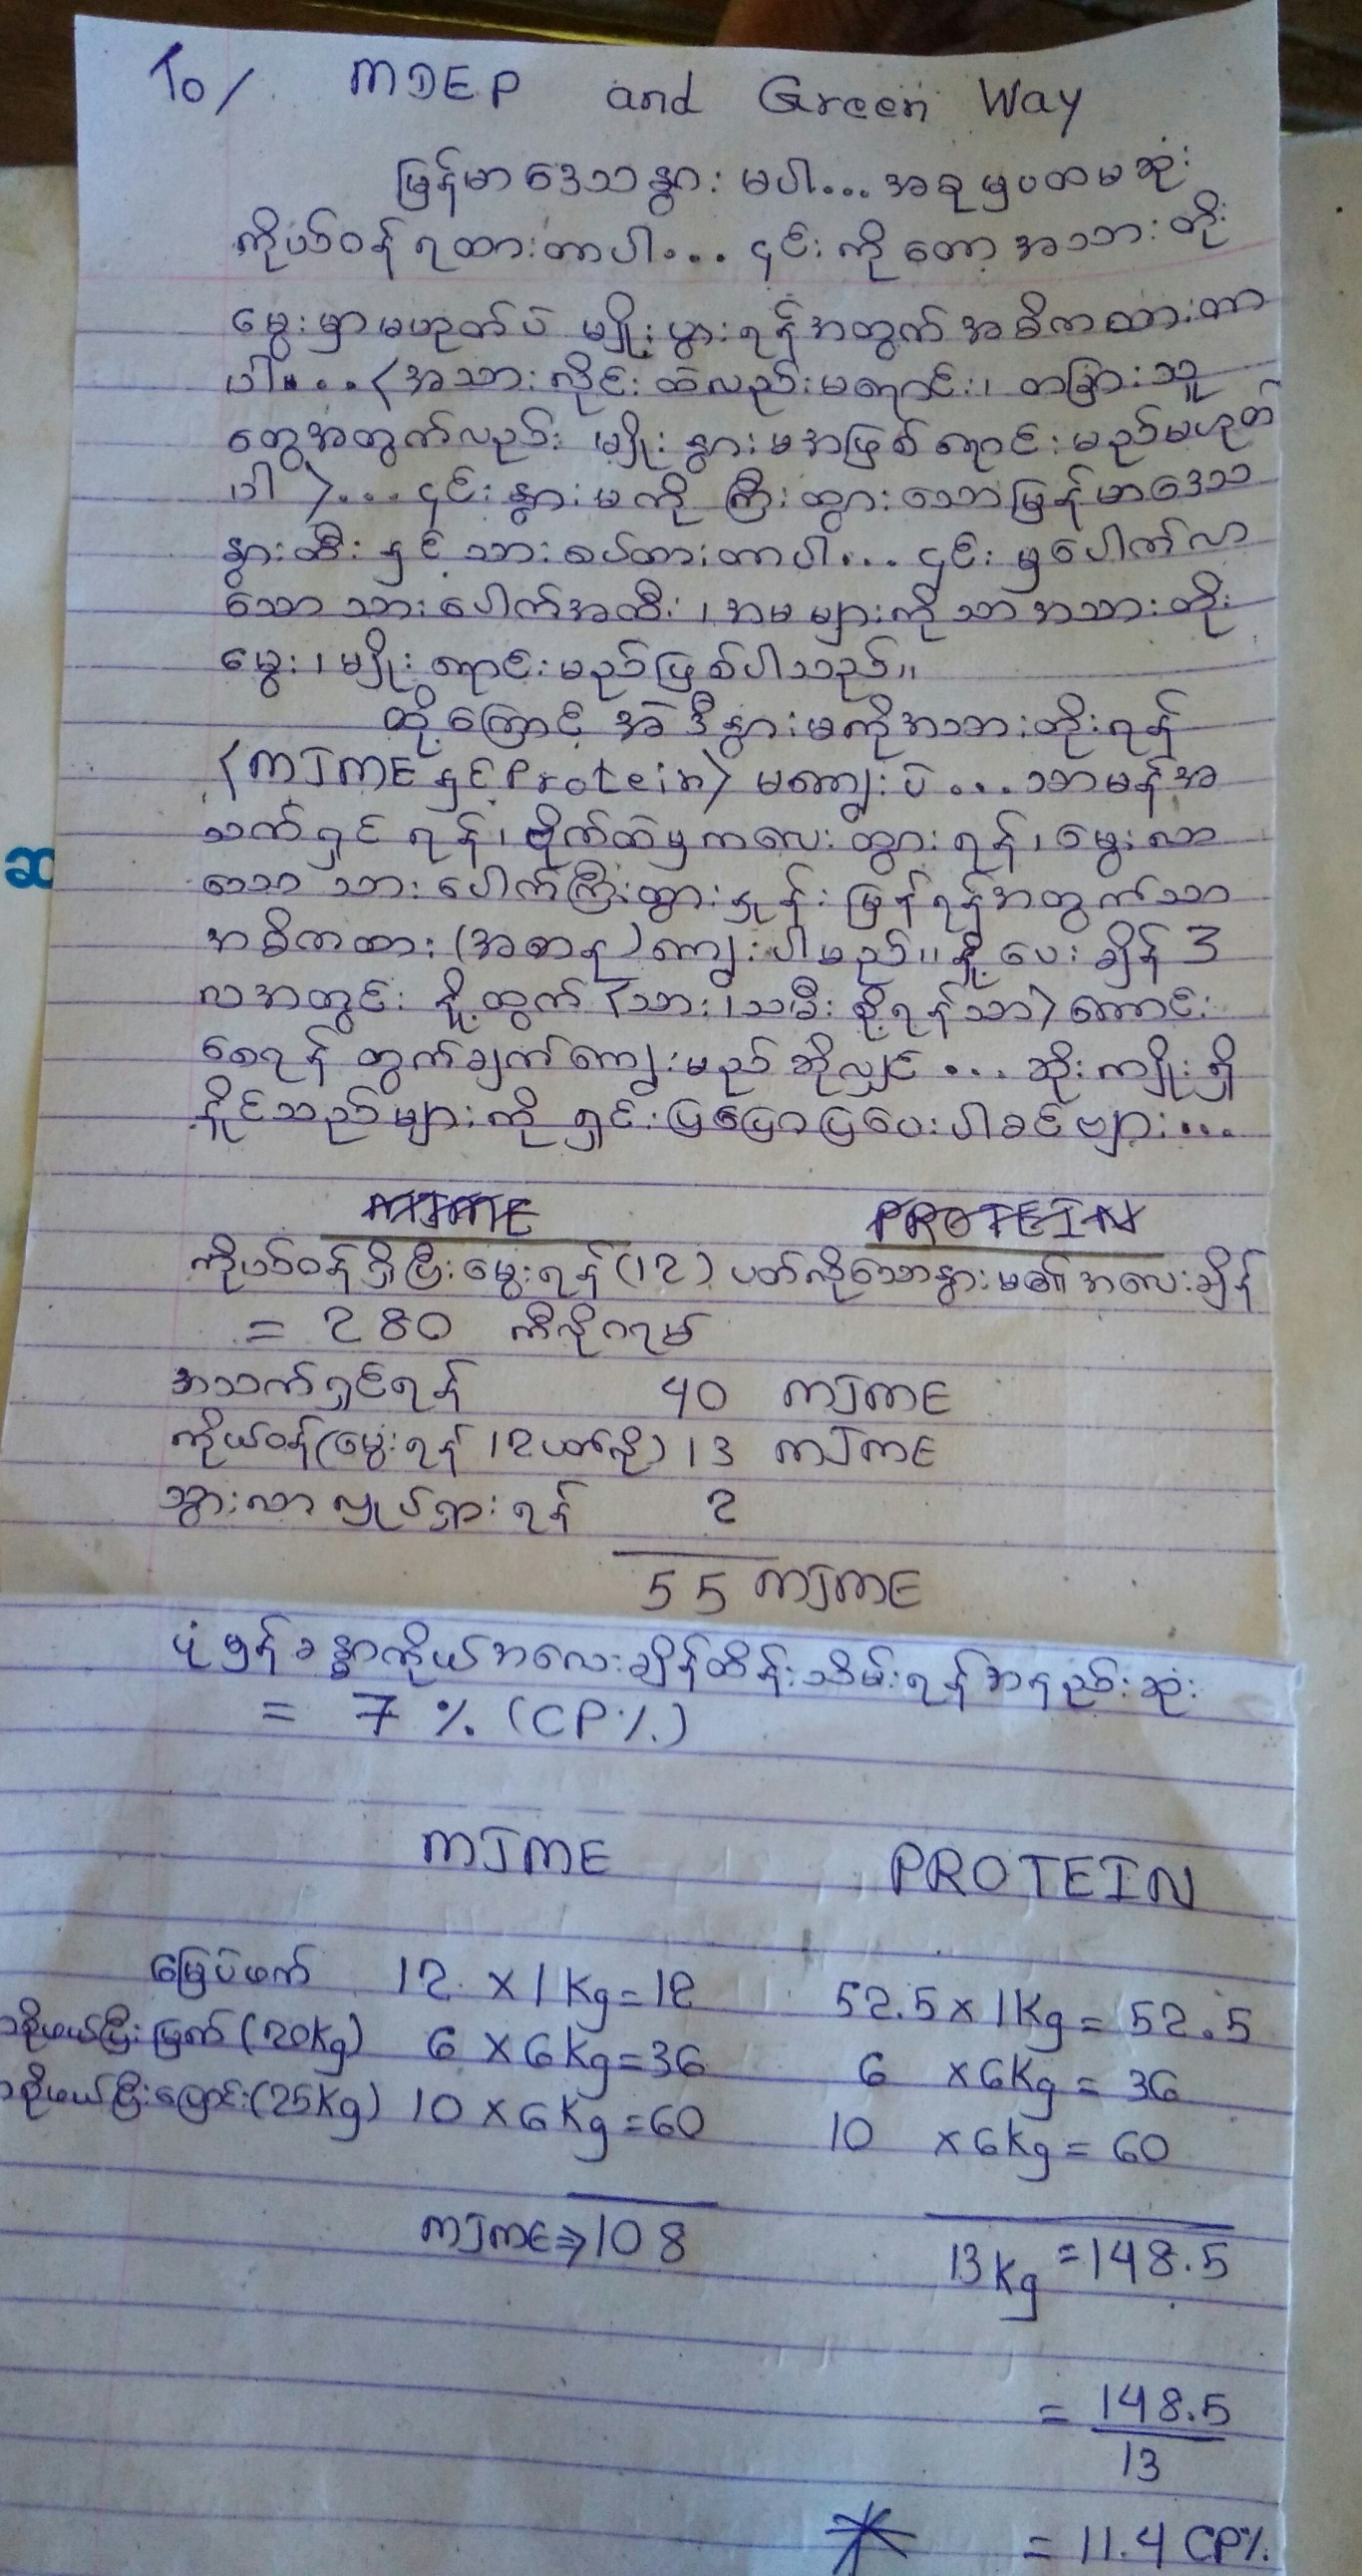 To/ MDEP and Green Way
မြန်မာဒေသနွား မပါ... အခုမှပထမဆုံး
ကိုယ်ဝန် ရထားတာပါ... ၎င်းကိုတော့ အသားတိုး
မွေးမှာမဟုတ်ပဲ မျိုးပွားရန်အတွက် အဓိကထားတာ
ပါ... (အသားလိုင်းထဲလည်းမရောင်း၊ တခြားသူ
တွေအတွက်လည်း မျိုးနွားမအဖြစ်ရောင်းမည်မဟုတ်
ပါ)... ၎င်းနွားမကို ကြီးထွားသောမြန်မာဒေသ
နွားထီးနှင့် သားစပ်ထားတာပါ... ၎င်းမှပေါက်လာ
သော သားပေါက်အထီး၊ အမများကိုသာ အသားတိုး
မွေး၊ မျိုးရောင်းမည်ဖြစ်ပါသည်။
ထို့ကြောင့် အဲဒီနွားမကိုအသားတိုးရန်
(MJME နှင့် Protein) မကျွေးပဲ... သာမန်အ
သက်ရှင်ရန်၊ ဗိုက်ထဲမှကလေးထွားရန်၊ မွေးလာ
သော သားပေါက်ကြီးထွားနှုန်းမြန်ရန်အတွက်သာ
အဓိကထား (အစာန) ကျွေးပါမည်။ နို့ပေးချိန် 3
လအတွင်း နို့ထွက် (သား၊သမီး စို့ရန်သာ) ကောင်း
စေရန် တွက်ချက်ကျွေးမည်ဆိုလျှင်... ဆိုးကျိုးရှိ
နိုင်သည်များကို ရှင်းပြပြောပြပေးပါခင်ဗျား...
MJME PROTEIN
ကိုယ်ဝန်ရှိပြီး မွေးရန် (12) ပတ်လိုသောနွားမ၏အလေးချိန်
= 280 ကီလိုဂရမ်
အသက်ရှင်ရန် 40 MJME
ကိုယ်ဝန် (မွေးရန် 12ပတ်လို) 13 MJME
သွားလာလှုပ်ရှားရန် 2
55 MJME
ပုံမှန်ခန္ဓာကိုယ်အလေးချိန်ထိန်းသိမ်းရန်အနည်းဆုံး
= 7 % (CP%)
MJME PROTEIN
မြေပဲဖက် 12 x 1 Kg = 12 52.5 x 1Kg = 52.5
သိုဖယ်ပြီးမြက် (20Kg) 6 x 6 Kg = 36 6 x 6Kg = 36
သိုဖယ်ပြီးပြောင်း (25Kg) 10 x 6 Kg = 60 10 x 6Kg = 60
MJME ⇒ 108 13Kg = 148.5
= 148.5
13
= 11.4 CP%